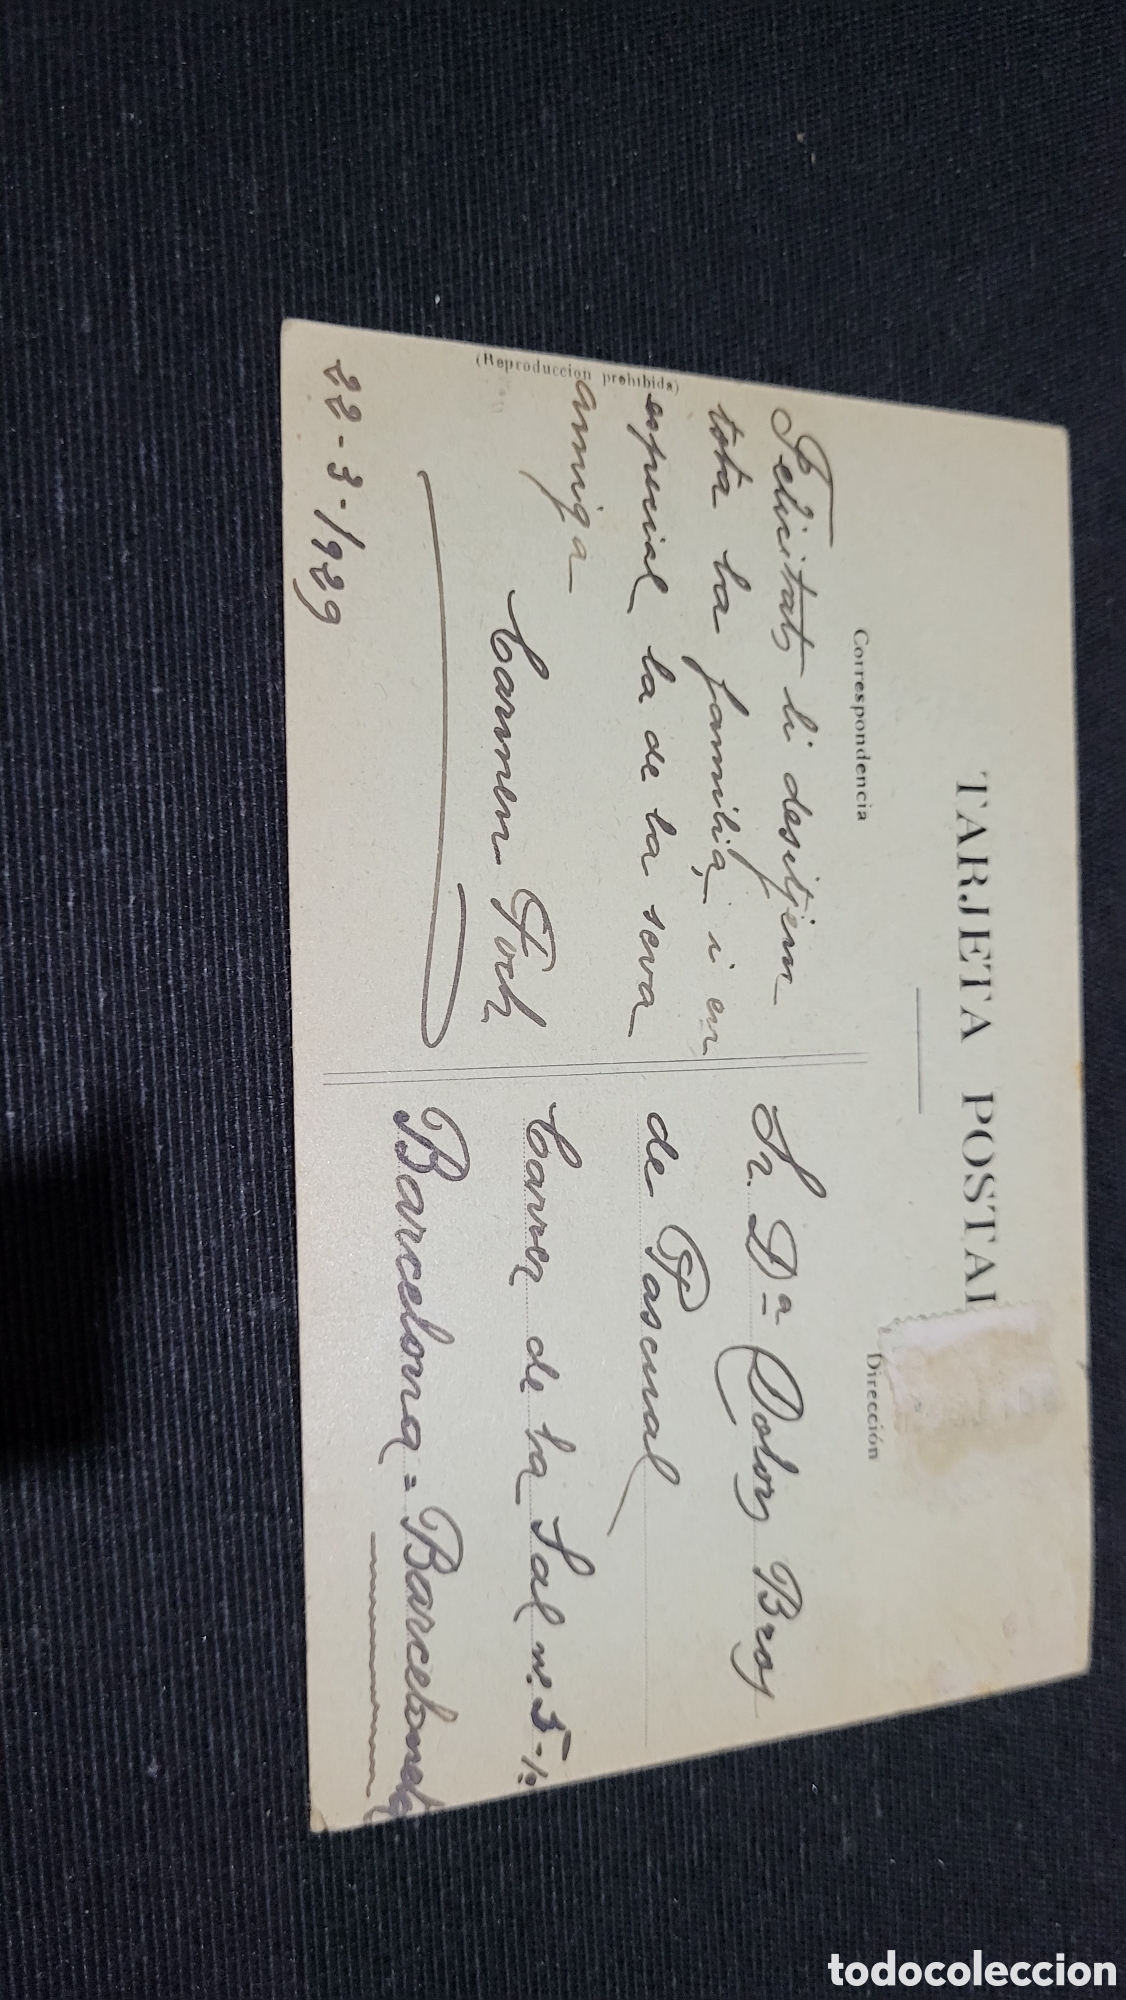 TARJETA POSTAL
Correspondencia
Felicitats li desitjem
tota la familia, i en
especial la de la seva
amiga
Carmen Foch
22-3-1929
(Reproduccion prohibida)
Dirección
Sr. Dª Dolors Bros
de Pascual
Carrer de la Sal nº. 5-1º
Barcelona = Barceloneta
todocoleccion